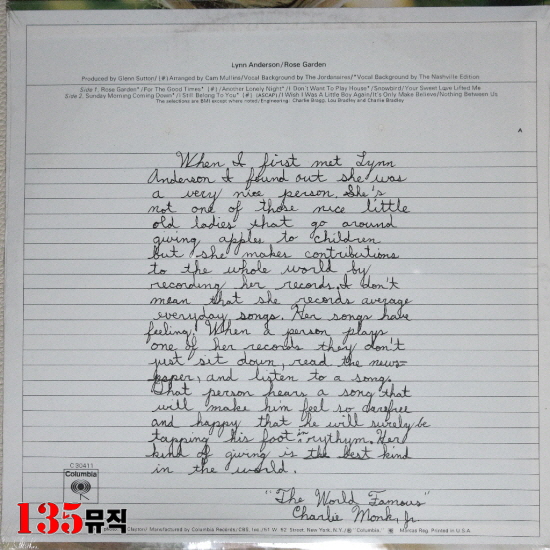 Lynn Anderson/Rose Garden
Produced by Glenn Sutton/(#)Arranged by Cam Mullins/Vocal Background by The Jordanaires/*Vocal Background by The Nashville Edition
Side 1. Rose Garden*/For The Good Times* (#)/Another Lonely Night*/I Don't Want To Play House*/Snowbird/Your Sweet Love Lifted Me
Side 2. Sunday Morning Coming Down*/I Still Belong To You* (#) (ASCAP)/I Wish I Was A Little Boy Again/It's Only Make Believe/Nothing Between Us
The selections are BMI except where noted/Engineering: Charlie Bragg, Lou Bradley and Charlie Bradley
A
When I first met Lynn
Anderson I found out she was
a very nice person. She's
not one of those nice little
old ladies that go around
giving apples to children
but she makes contributions
to the whole world by
recording her records. I don't
mean that she records average
everyday songs. Her songs have
feeling! When a person plays
one of her records they don't
just sit down, read the news-
paper, and listen to a song.
That person hears a song that
will make him feel so carefree
and happy that he will surely be
tapping his foot in rythym. Her
kind of giving is the best kind
in the world.
"The World Famous"
Charlie Monk, Jr.
C 30411
Columbia
135뮤직
Manufactured by Columbia Records/CBS, Inc./51 W. 52 Street, New York, N.Y./® "Columbia," Marcas Reg. Printed in U.S.A.